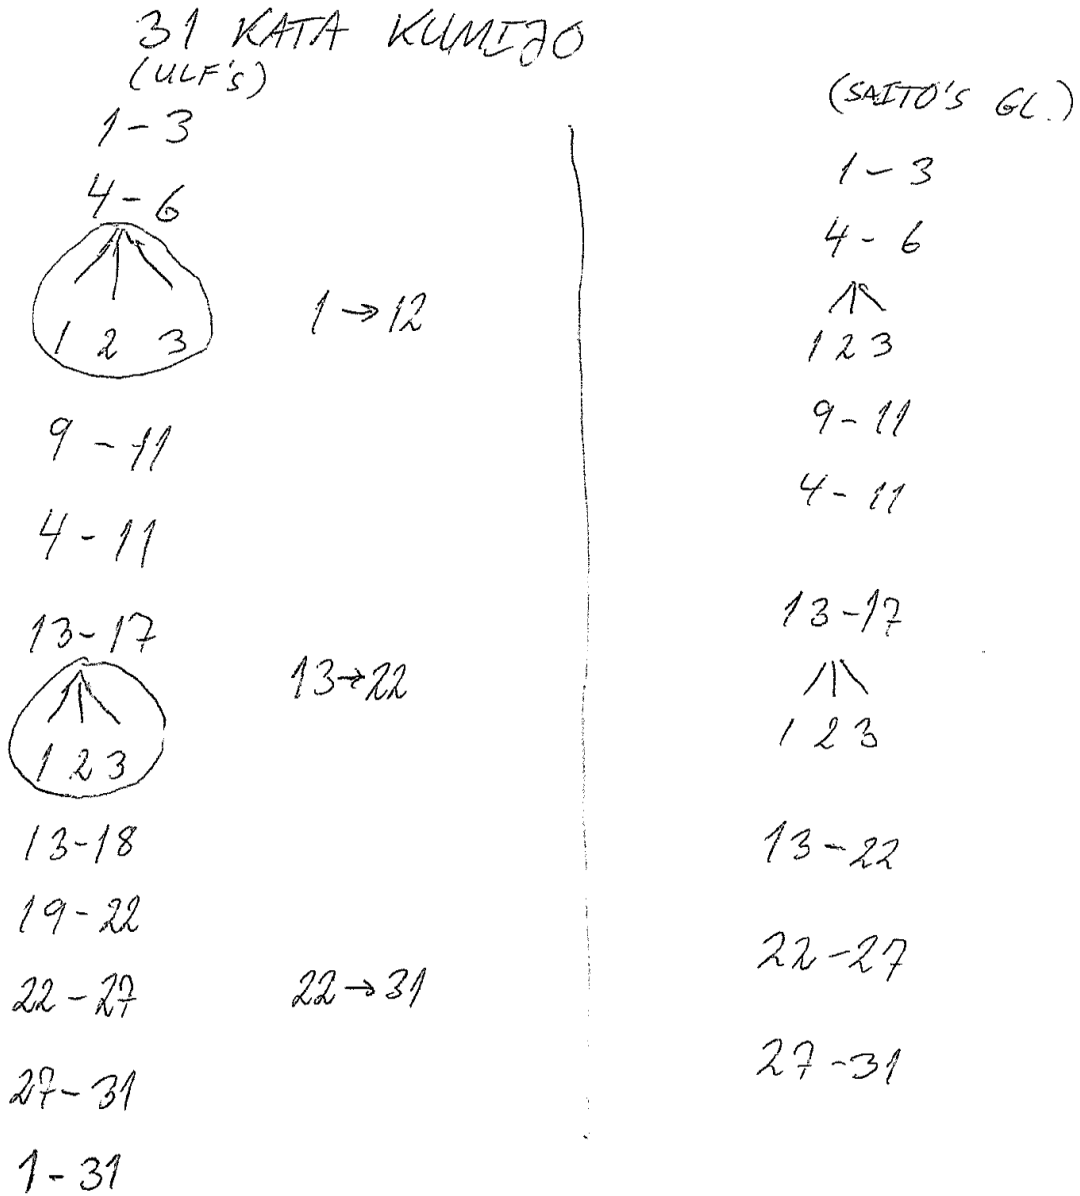 31 KATA KUMIJO
(ULF'S)
1-3
4-6
1 2 3
1→12
9-11
4-11
13-17
13→22
1 2 3
13-18
19-22
22-27
22→31
27-31
1-31
(SAITO'S GL.)
1-3
4-6
1 2 3
9-11
4-11
13-17
1 2 3
13-22
22-27
27-31